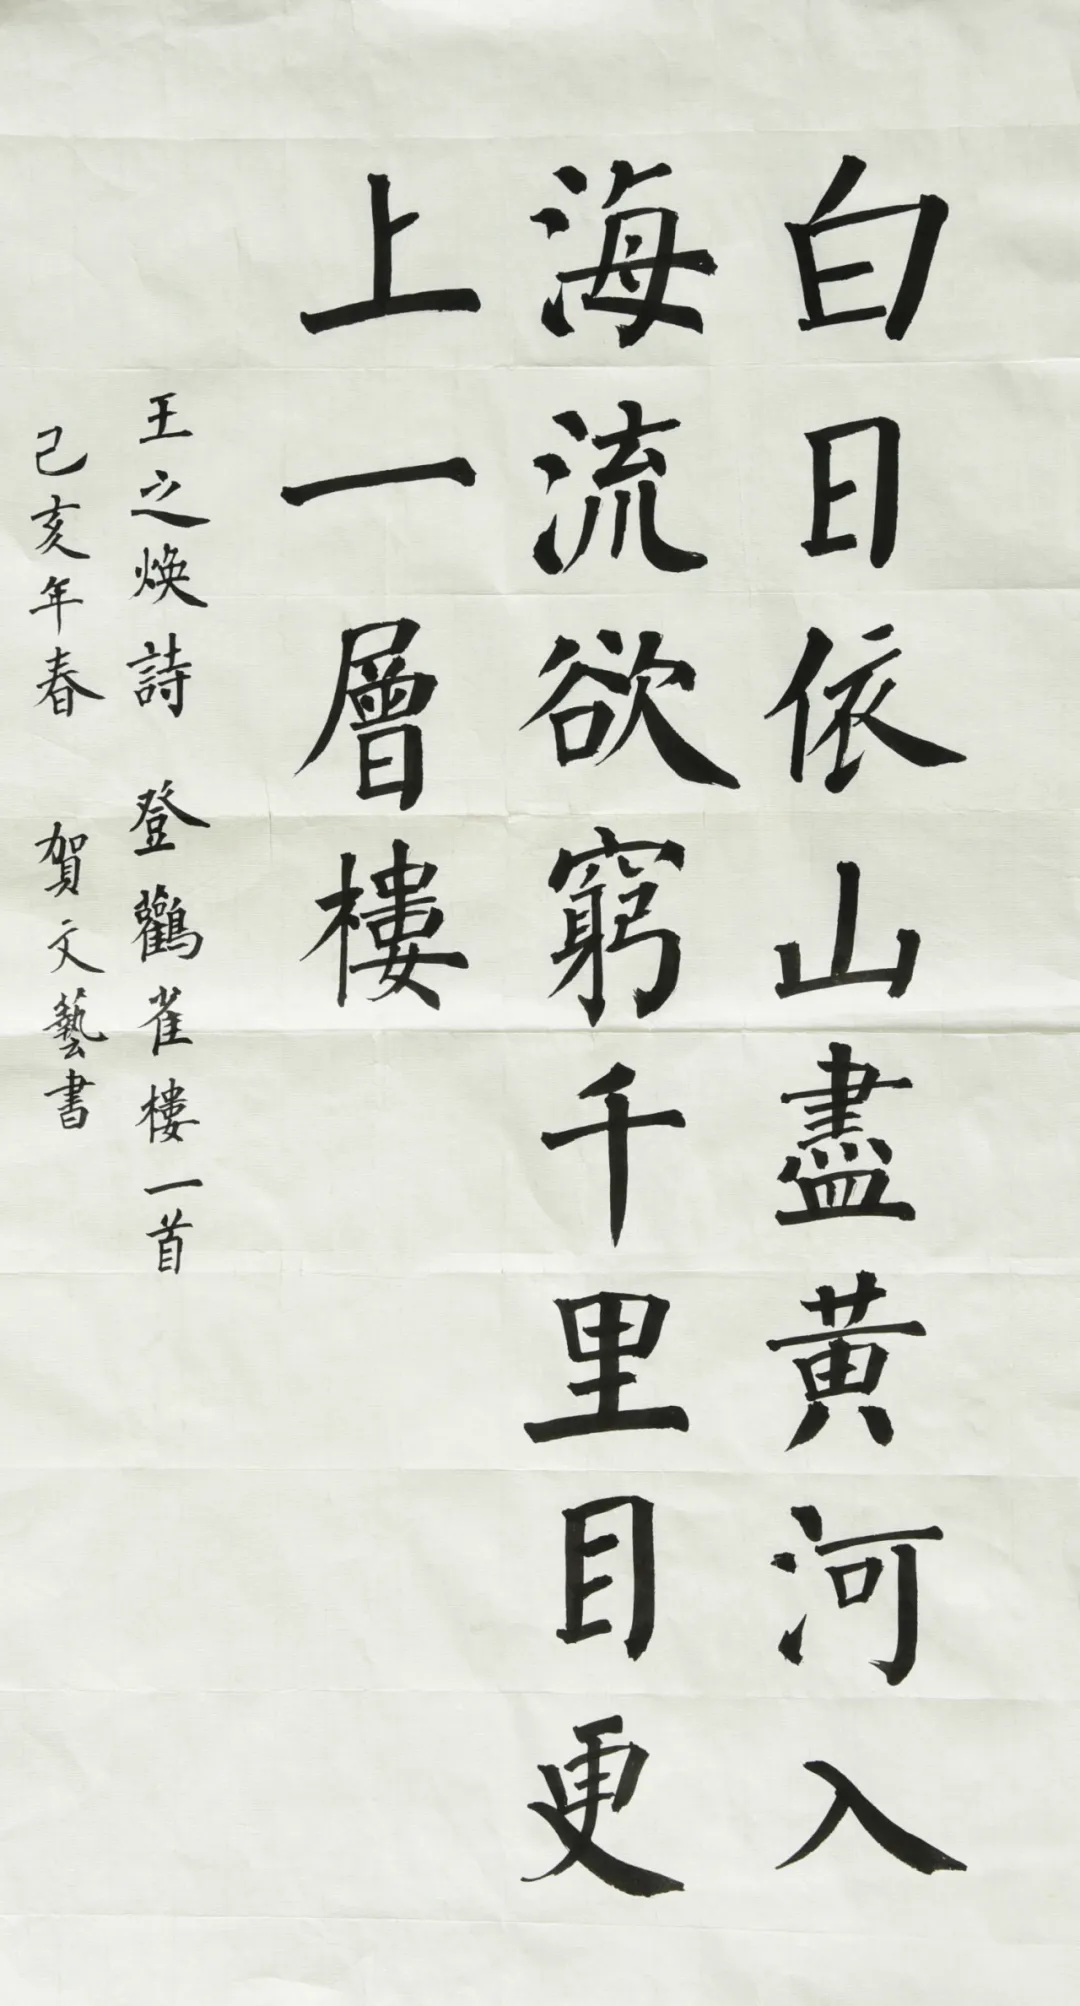 白日依山盡黄河入
海流欲窮千里目更
上一層樓
王之焕詩 登鸛雀樓一首
己亥年春 賀文藝書